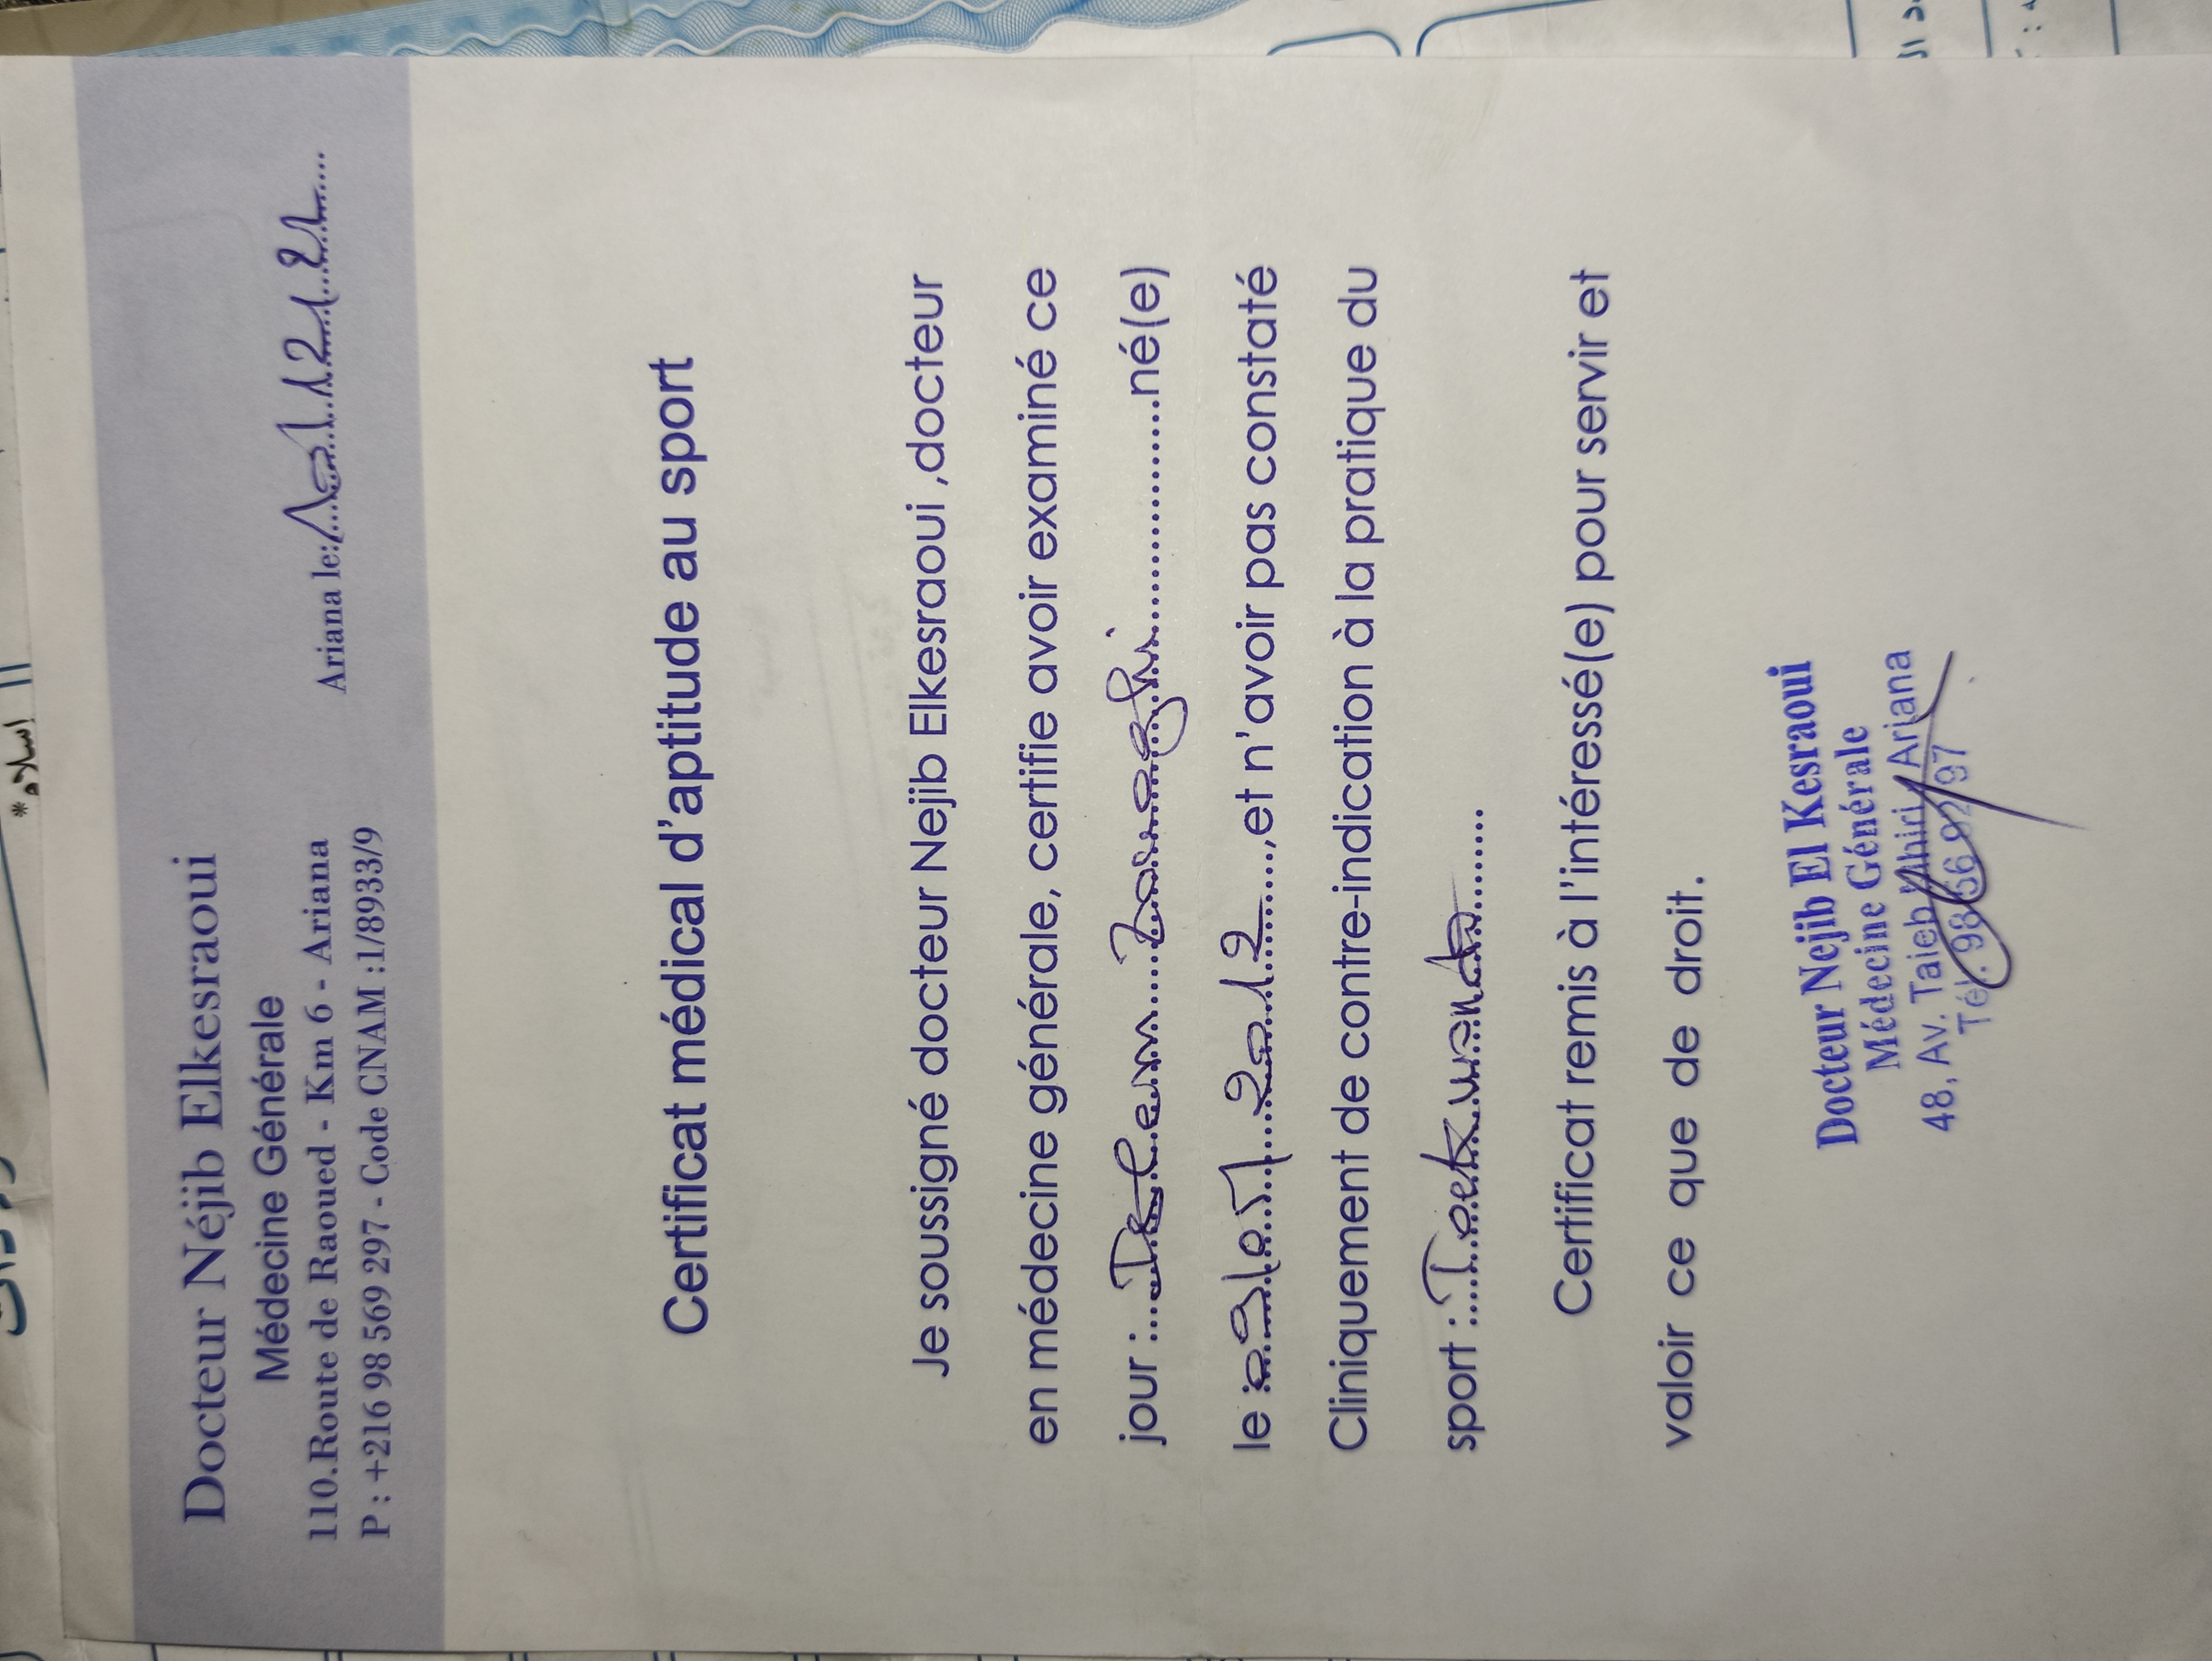 Docteur Néjib Elkesraoui
Médecine Générale
110.Route de Raoued - Km 6 - Ariana
P : +216 98 569 297 - Code CNAM :1/8933/9
Ariana le:
Certificat médical d'aptitude au sport
Je soussigné docteur Nejib Elkesraoui ,docteur
en médecine générale, certifie avoir examiné ce
jour : né(e)
le 2012 ,et n'avoir pas constaté
Cliniquement de contre-indication à la pratique du
sport : Taekwondo
Certificat remis à l'intéressé(e) pour servir et
valoir ce que de droit.
Docteur Nejib El Kesraoui
Médecine Générale
48, Av. Taieb Mhiri Ariana
Tél.
اسلام *